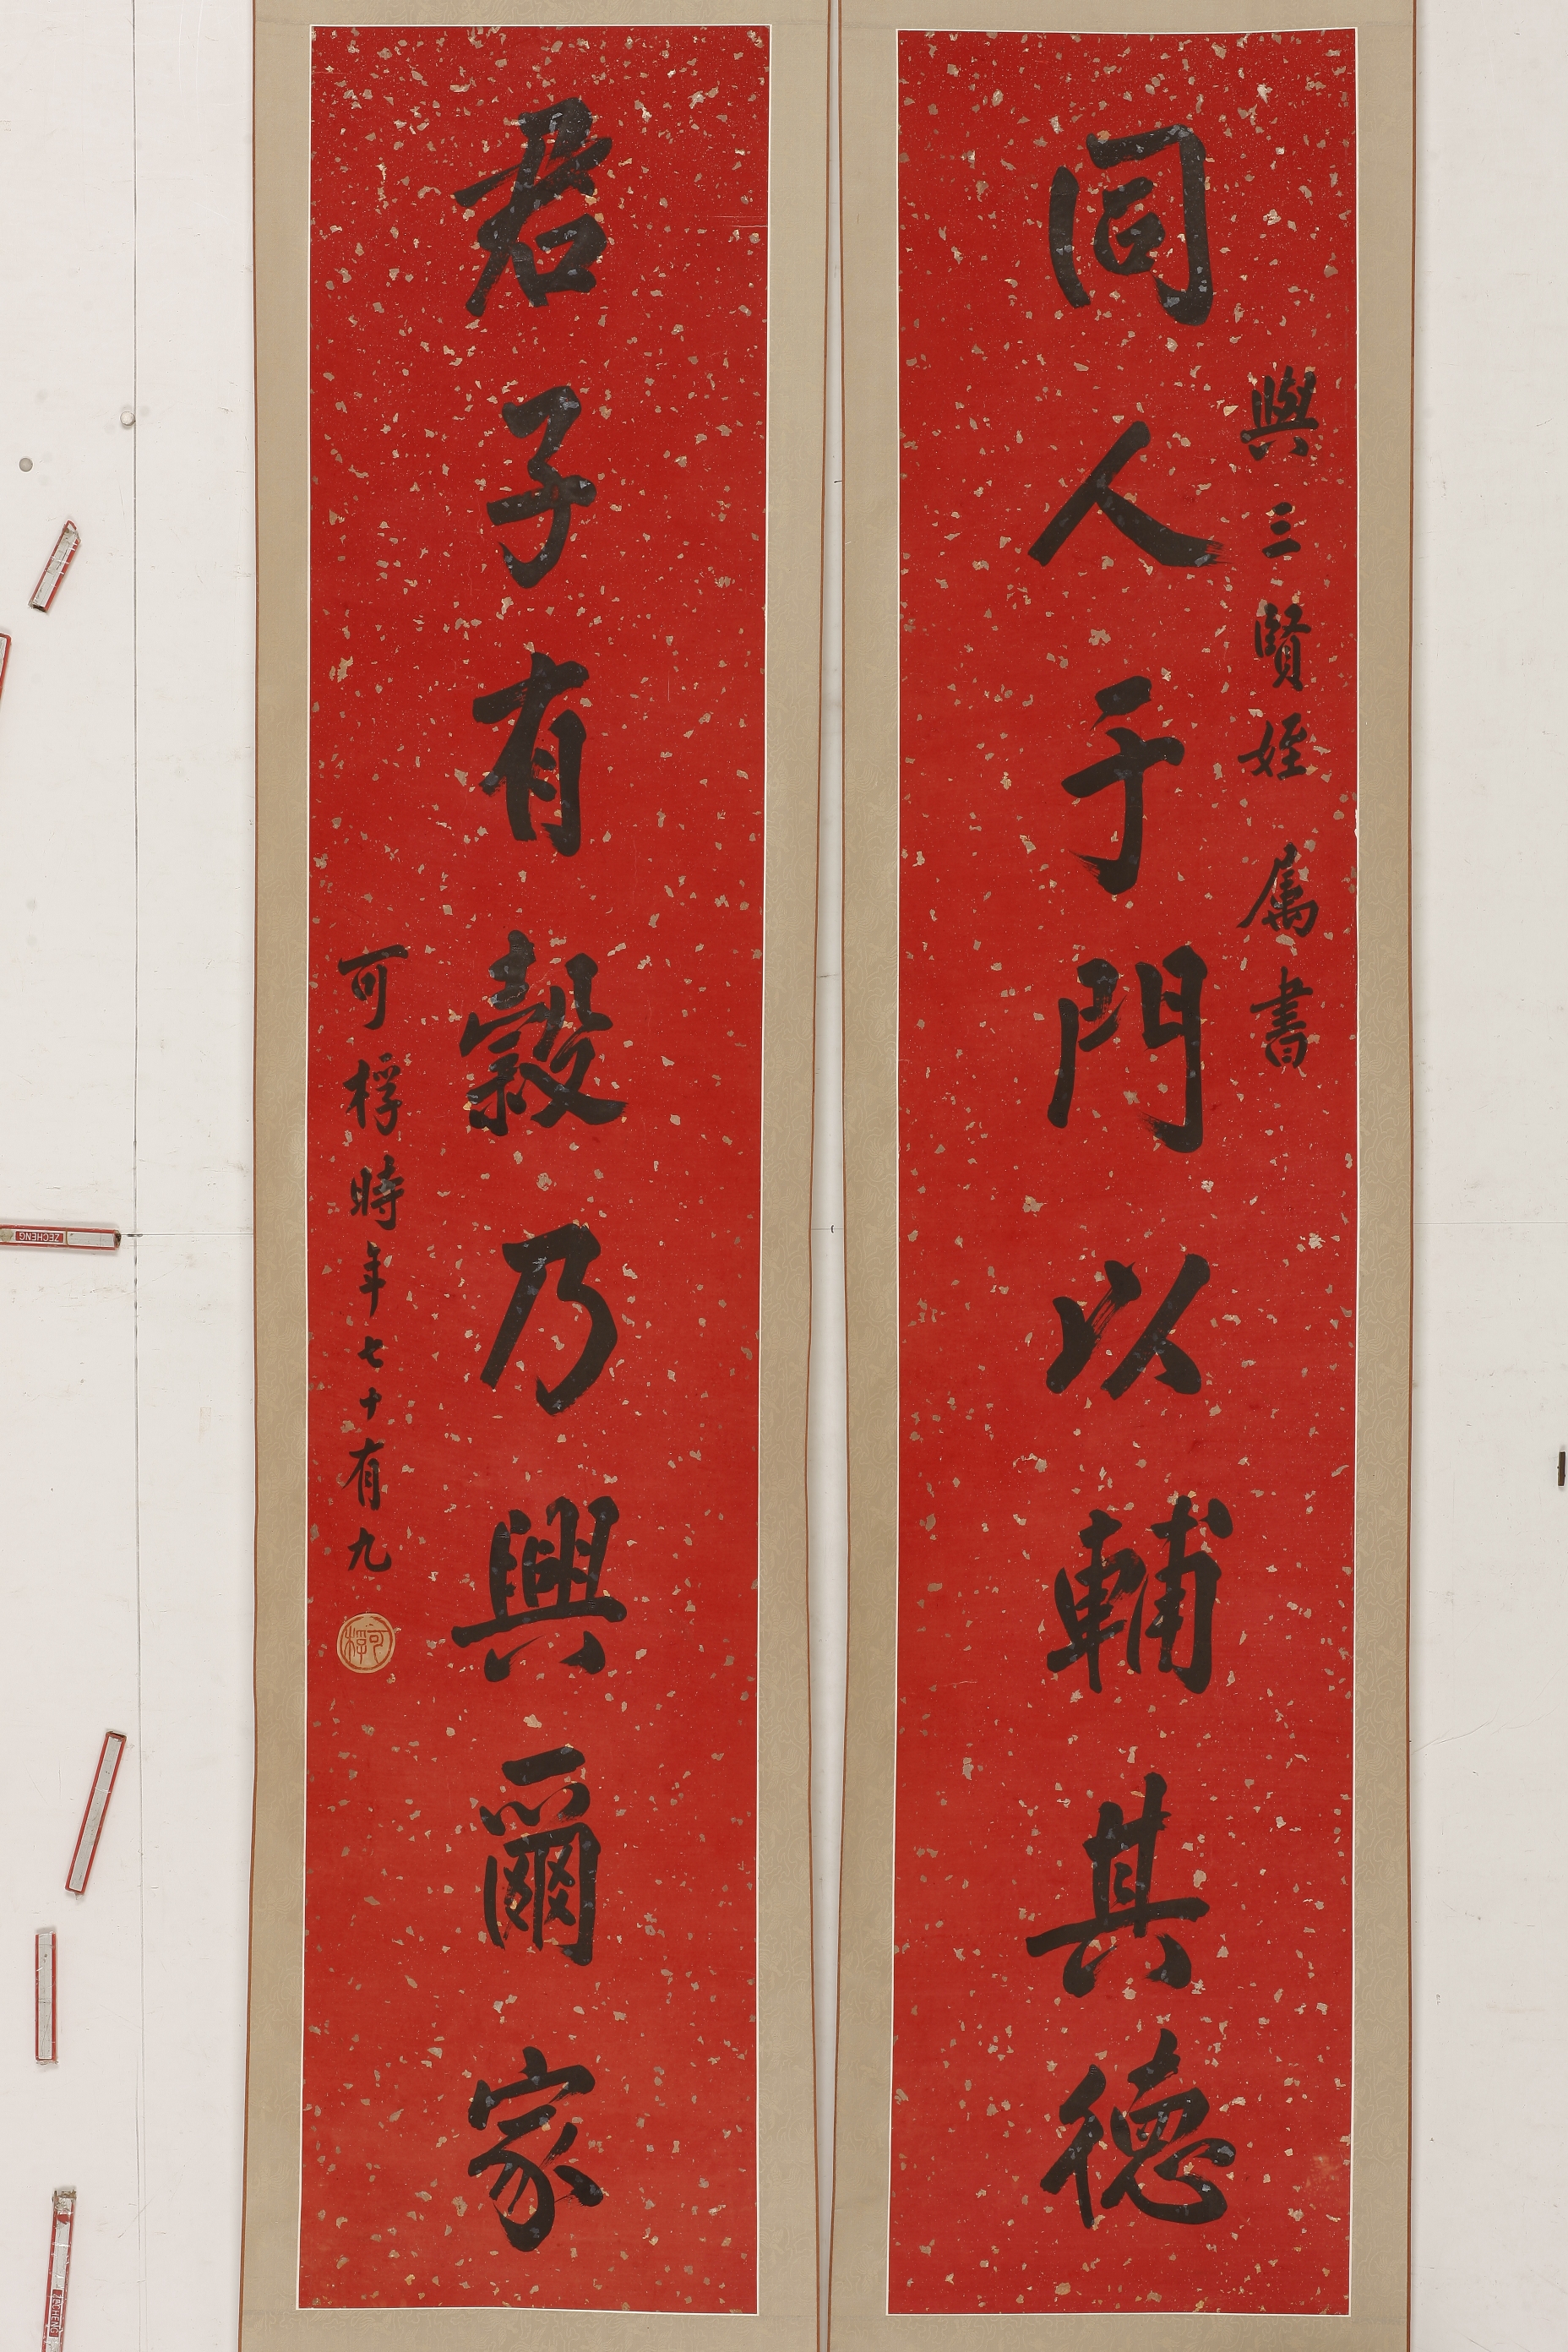 與三賢姪屬書
同人于門以輔其德
君子有穀乃興爾家
可桴時年七十有九
可桴
ZECHENG
ZECHENG